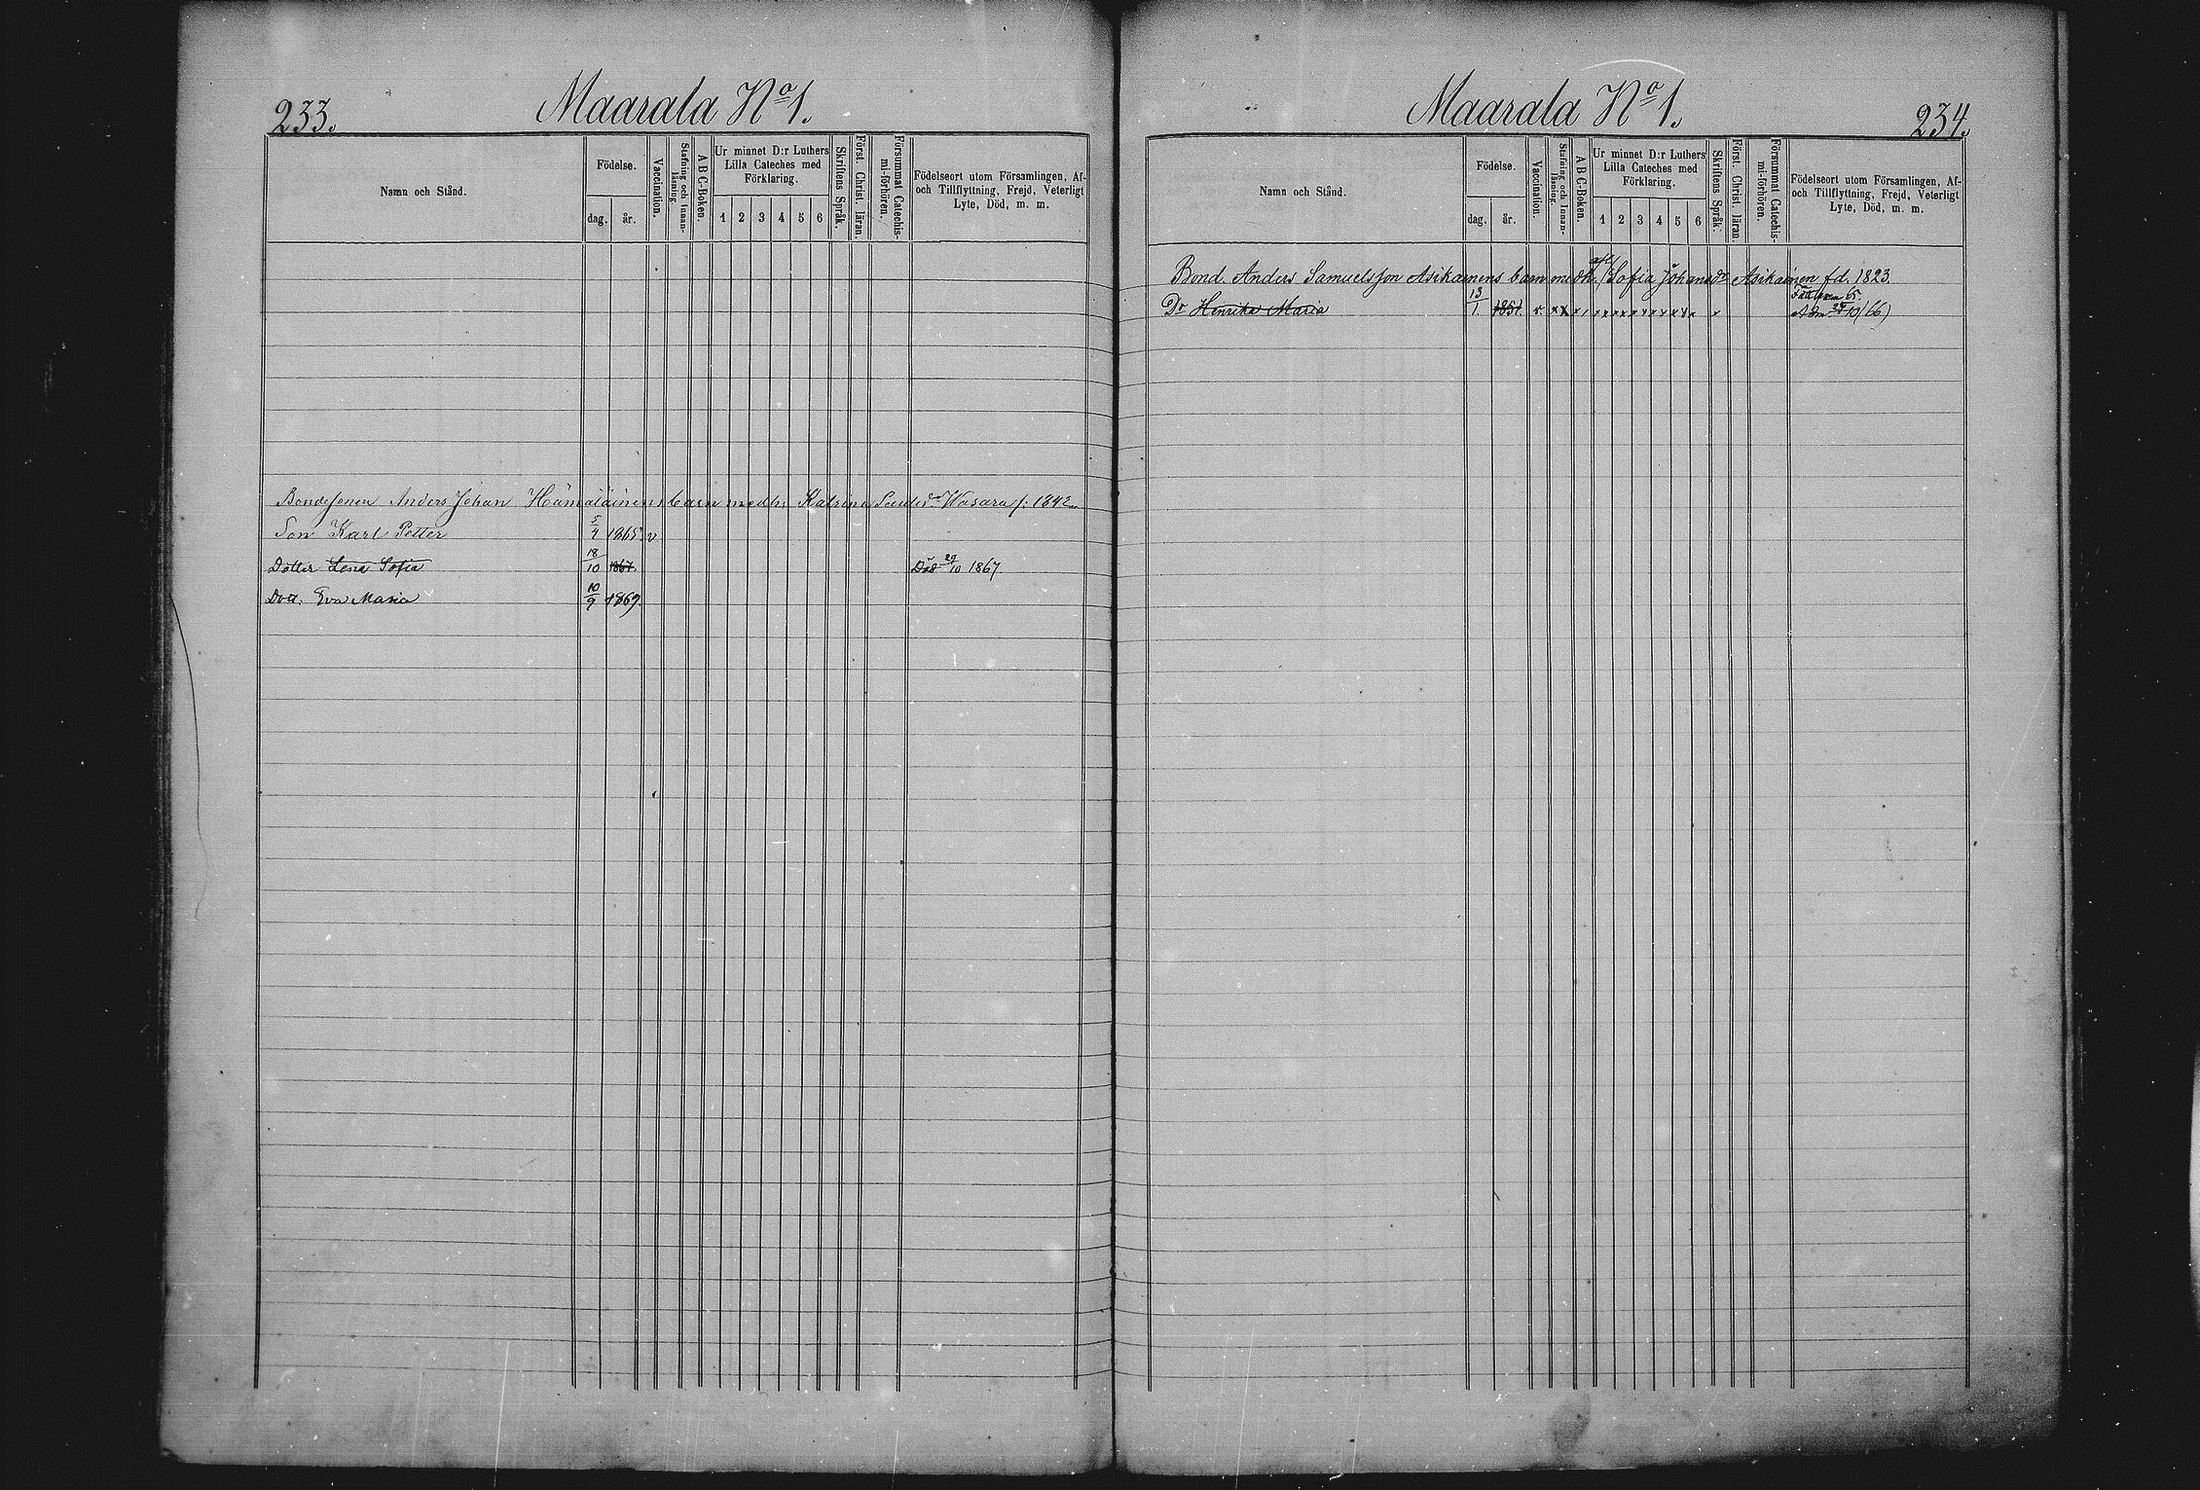 233.
Maarala No 1.
Namn och Stånd.
Födelse.
dag.
år.
Vaccination.
Stafning och Innanläsning.
A B C-Boken.
Ur minnet D:r Luthers
Lilla Cateches med
Förklaring.
1 2 3 4 5 6
Skriftens Språk.
Först. Christ. läran.
Försummat Catechismi-förhören.
Födelseort utom Församlingen, Af-
och Tillflyttning, Frejd, Veterligt
Lyte, Död, m. m.
Bondesonen Anders Johan Hämäläinens barn med h. Katrina Wasara f: 1842
Son Karl Petter 5/4 1865 v
Dotter Lena Sofia 18/10 1867 Död 29/10 1867
Dott. Eva Maria 10/9 1869
Maarala No 1.
234.
Namn och Stånd.
Födelse.
dag.
år.
Vaccination.
Stafning och Innanläsning.
A B C-Boken.
Ur minnet D:r Luthers
Lilla Cateches med
Förklaring.
1 2 3 4 5 6
Skriftens Språk.
Först. Christ. läran.
Försummat Catechismi-förhören.
Födelseort utom Församlingen, Af-
och Tillflyttning, Frejd, Veterligt
Lyte, Död, m. m.
Bond. Anders Samuelsson Asikainens barn med h. afl. Sofia Johansdr Asikainen fd. 1823.
Dr Henrika Maria 13/1 1851 v. x x x x x x x x x x x x x 10 (66)